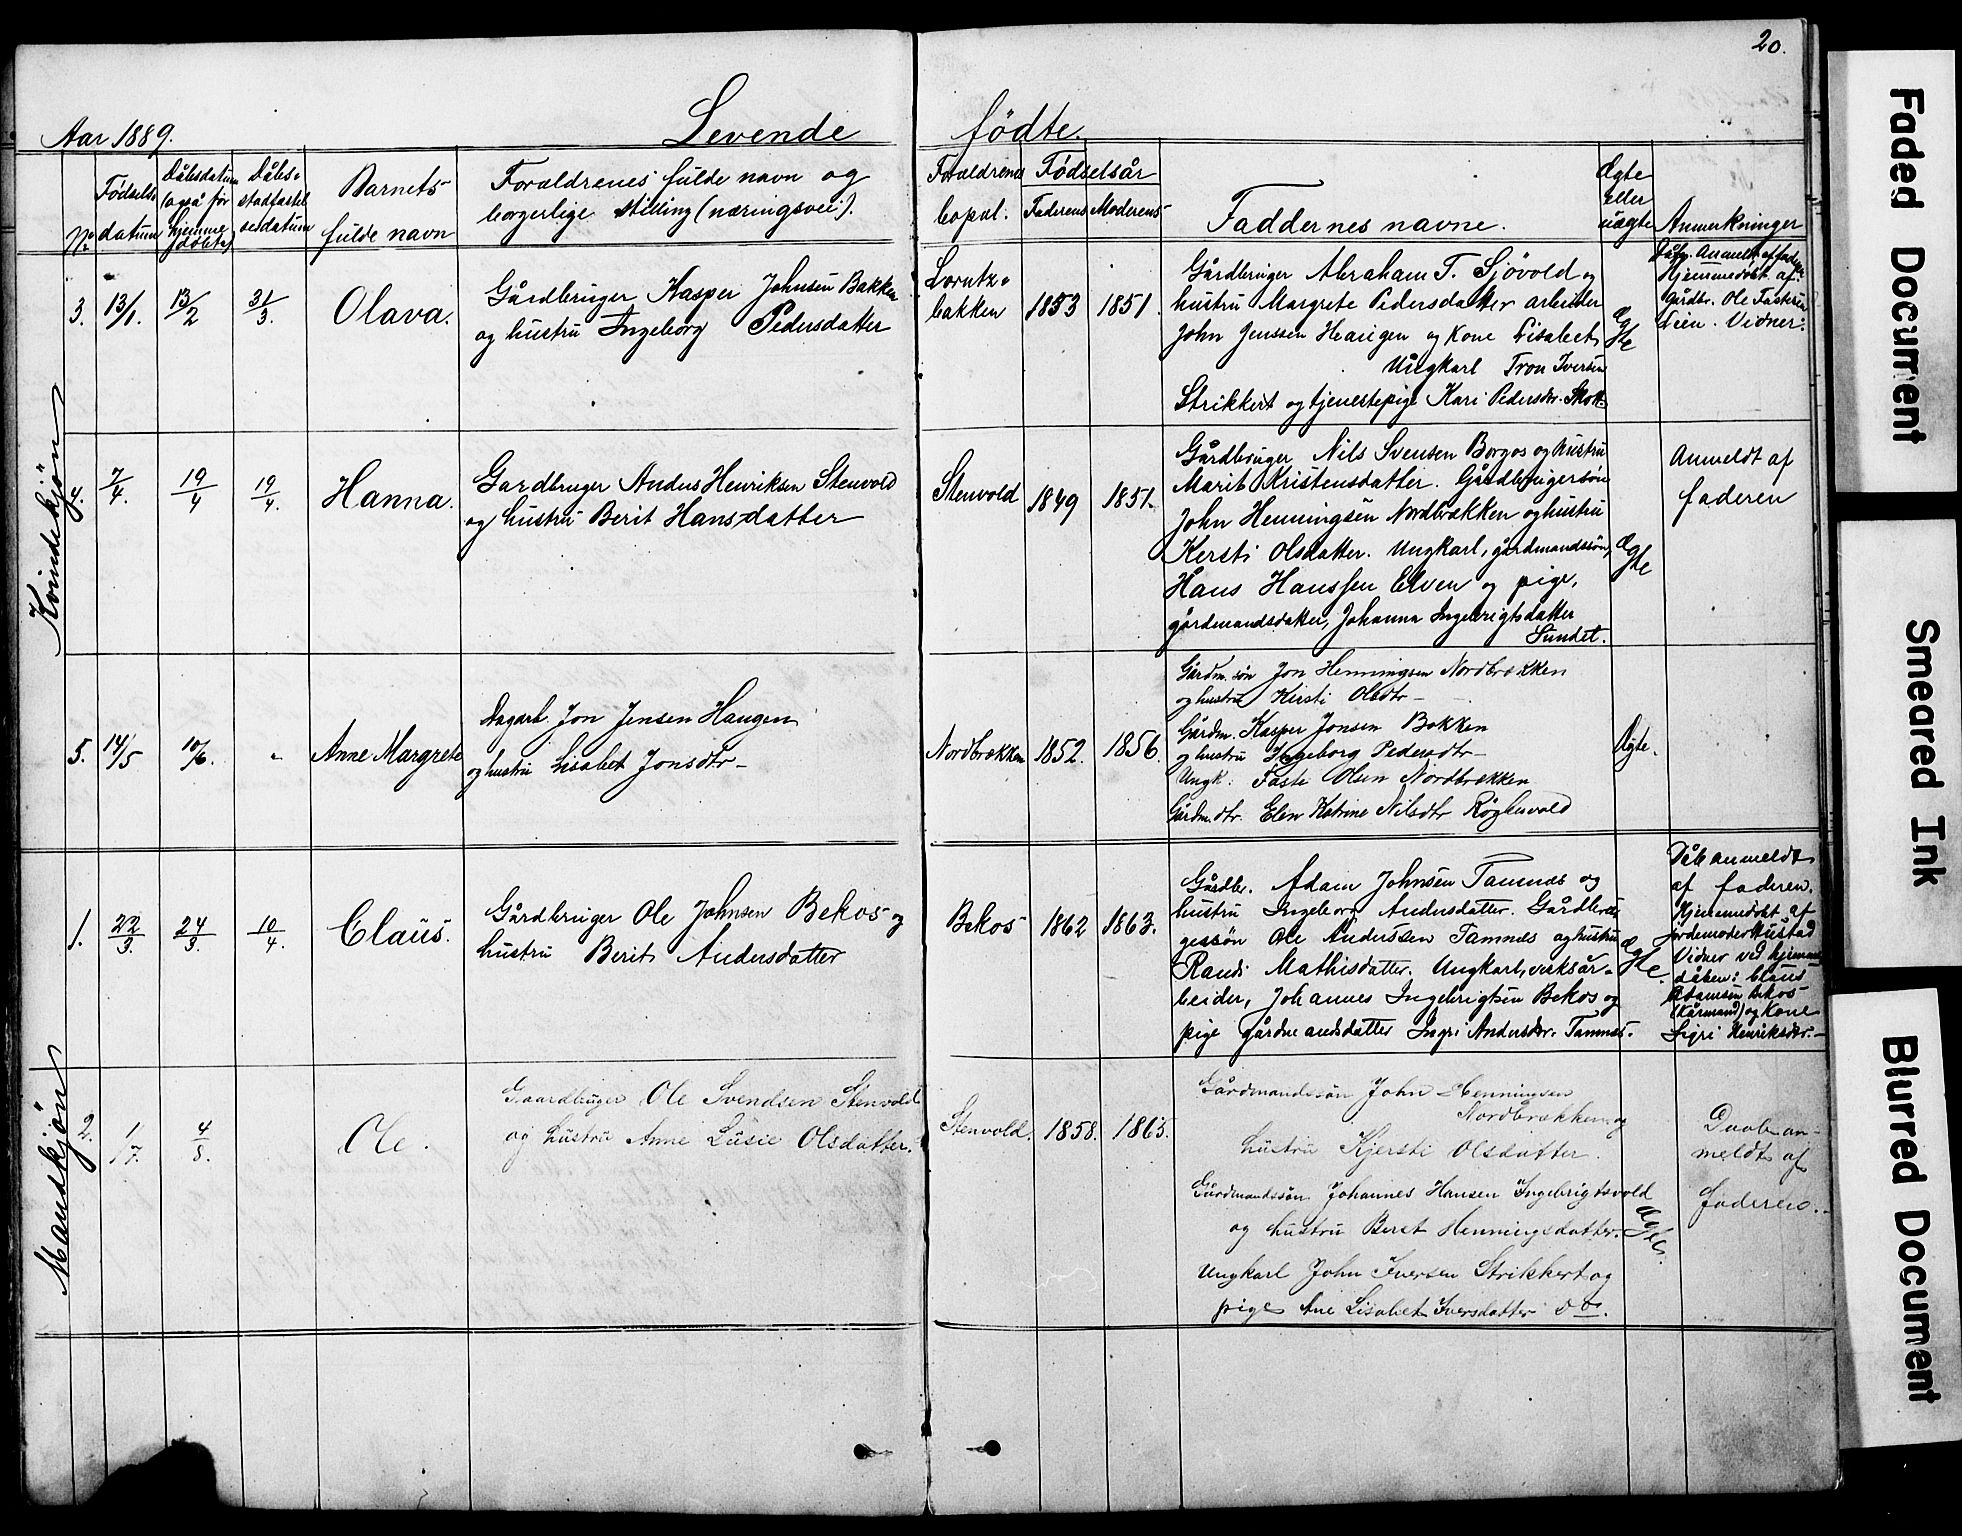 20.
Aar 1889.
Levende fødte.
No
Fødsels-
datum
Dåbsdatum
(også for
hjemme
døbte)
Dåbs-
stadfæstel
sesdatum
Barnets
fulde navn
Forældrenes fulde navn og
borgerlige stilling (næringsvei).
Forældrenes
bopæl.
Fødselsår
Faderens
Moderens
Faddernes navne.
Ægte
eller
uægte
Anmerkninger
Kvindekjøn
3.
13/1.
13/2
31/3.
Olava.
Gårdbruger Kasper Johnsen Bakken
og hustru Ingeborg Pedersdatter
Lorntz-
bakken
1853
1851.
Gårdbruger Abraham T. Sjøvold og
hustru Margrete Pedersdatter arbeider
John Jenssen Haugen og Kone Lisabet
Ungkarl Tron Iversen
Strikkert og tjenestepige Kari Pedersdr. Skott
Ægte
Dåb. Anmeldt af faderen
Hjemmedøbt af
Gårdbr. Ole Fastesen
Lien. Vidner:
4.
7/4.
19/4
19/4.
Hanna.
Gardbruger Anders Henriksen Stenvold
og hustru Berit Hansdatter
Stenvold
1849
1851.
Gårdbruger Nils Svensen Borgos og hustru
Marit Kristensdatter. Gårdbrugersøn
John Henningsen Nordbrækken og hustru
Kersti Olsdatter. Ungkarl, gårdmandssøn,
Hans Hanssen Elven og pige,
gårdmandsdatter, Johanna Ingebrigtsdatter
Sundet.
Ægte
Anmeldt af
faderen
5.
14/5
10/6.
-
Anne Margrete
Dagarb. Jon Jensen Haugen
og hustru Lisabet Jonsdtr
Nordbrækken
1852.
1856.
Gårdm. søn Jon Henningsen Nordbrækken
og hustru Kirsti Olsdtr
Gårdm. Kasper Jonsen Bakken
og hustru Ingeborg Pedersdtr
Ungk: Faste Olsen Nordbrækken
Gårdm.dtr. Elen Katrine Nilsdtr
Ægte.
Mandkjøn
1.
22/3.
24/3.
10/4.
Claus.
Gårdbruger Ole Johnsen Bekos og
hustru Berit Andersdatter
Bekos
1862
1863.
Gårdbr. Adam Johnsen Tamnæs og
hustru Ingeborg Andersdatter. Gårdbru
gersøn Ole Anderssen Tamnæs og hustru
Randi Mathisdatter. Ungkarl, verksår-
beider, Johannes Ingebrigtsen Bekos og
pige gårdmandsdatter Ingri Andersdr. Tamnæs.
Ægte.
Dåb anmeldt
af faderen.
Hjemmedøbt af
jordemoder Hustad
Vidner ved hjemme
dåben: Claus
Adamsen Bekos
(Kårmand) og Kone
Sigri Henriksdr.
2.
1/7.
4/8.
Ole.
Gaardbruger Ole Svendsen Stenvold
og hustru Anne Lusie Olsdatter.
Stenvold.
1858.
1865.
Gårdmandssøn John Henningsen
Nordbrækken og
hustru Kjersti Olsdatter.
Gårdmandssøn Johannes Hansen Ingebrigtsvold
og hustru Beret Henningsdatter.
Ungkarl John Iversen Strikkert og
pige Ane Lisabet Iversdatter do.
Ægte.
Daab an-
meldt af
faderen.
Faded Document
Smeared Ink
Blurred Document